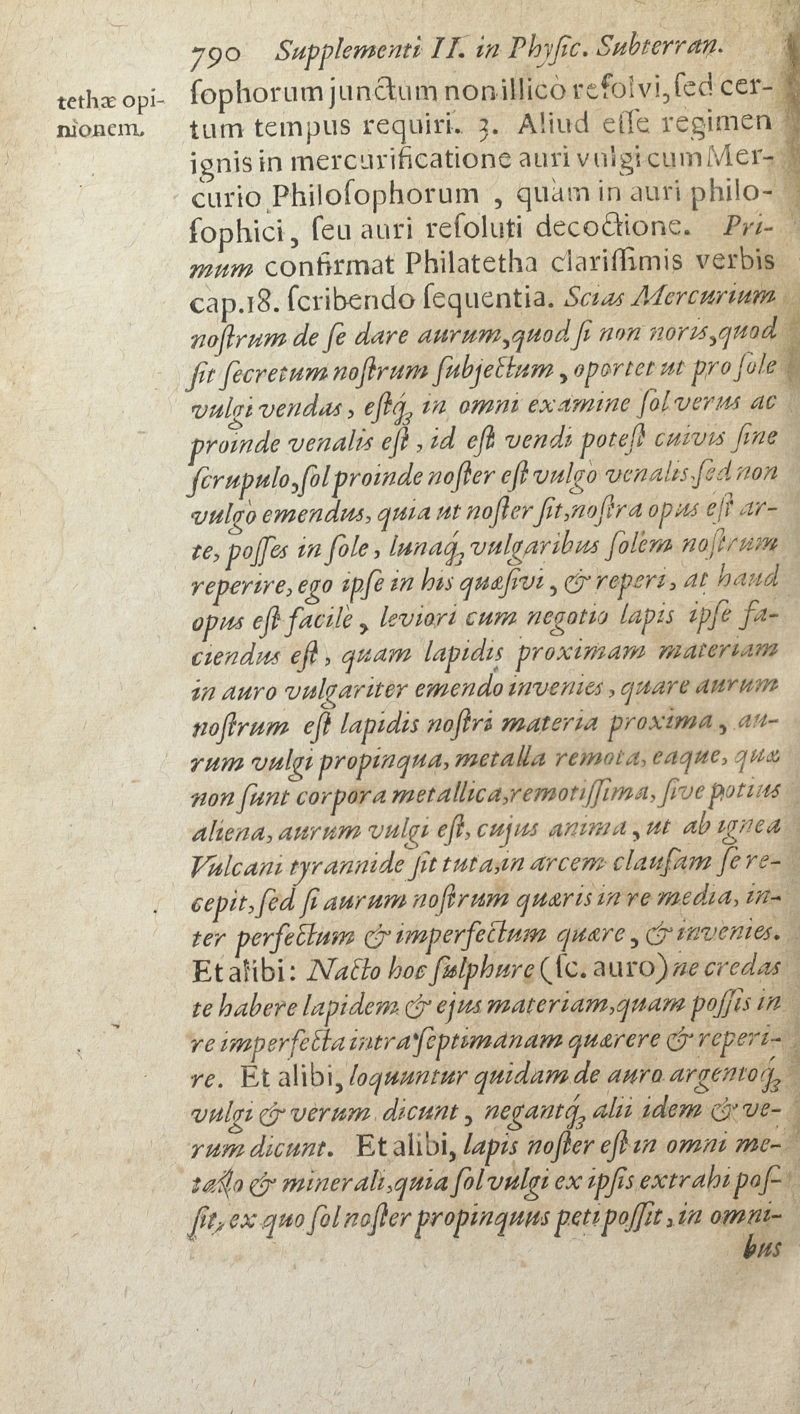 790 Supplementi II. in Phyſic. Subterran.
tethæ opi-
nionem.
ſophorum junctum non illicò reſolvi, ſed cer-
tum tempus requiri. 3. Aliud eſſe regimen
ignis in mercurificatione auri vulgi cum Mer-
curio Philoſophorum , quàm in auri philo-
ſophici, ſeu auri reſoluti decoctione. Pri-
mum confirmat Philatetha clariſſimis verbis
cap.18. ſcribendo ſequentia. Scias Mercurium
noſtrum de ſe dare aurum, quod ſi non noris, quod
ſit ſecretum noſtrum ſubjectum, oportet ut pro ſole
vulgi vendas, eſtq́; in omni examine ſol verus ac
proinde venalis eſt, id eſt vendi poteſt cuivis ſine
ſcrupulo, ſol proinde noſter eſt vulgò venalis ſed non
vulgò emendus, quia ut noſter ſit, noſtra opus eſt ar-
te, poſſes in ſole, lunaq́; vulgaribus ſolem noſtrum
reperire, ego ipſe in his quæſivi, & reperi, at haud
opus eſt facile, leviori cum negotio lapis ipſe fa-
ciendus eſt, quam lapidis proximam materiam
in auro vulgariter emendo invenies, quare aurum
noſtrum eſt lapidis noſtri materia proxima, au-
rum vulgi propinqua, metalla remota, eaque, quæ
non ſunt corpora metallica, remotiſſima, ſive potius
aliena, aurum vulgi eſt, cujus anima, ut ab ignea
Vulcani tyrannide ſit tuta, in arcem clauſam ſe re-
cepit, ſed ſi aurum noſtrum quæris in re media, in-
ter perfectum & imperfectum quære, & invenies.
Et alibi: Nacto hoc ſulphure (ſc. auro) ne credas
te habere lapidem & ejus materiam, quam poſſis in
re imperfecta intra ſeptimanam quærere & reperi-
re. Et alibi, loquuntur quidam de auro argentoq́;
vulgi & verum dicunt, negantq́; alii idem & ve-
rum dicunt. Et alibi, lapis noſter eſt in omni me-
tallo & minerali, quia ſol vulgi ex ipſis extrahi poſ-
ſit, ex quo ſol noſter propinquus peti poſſit, in omni-
bus